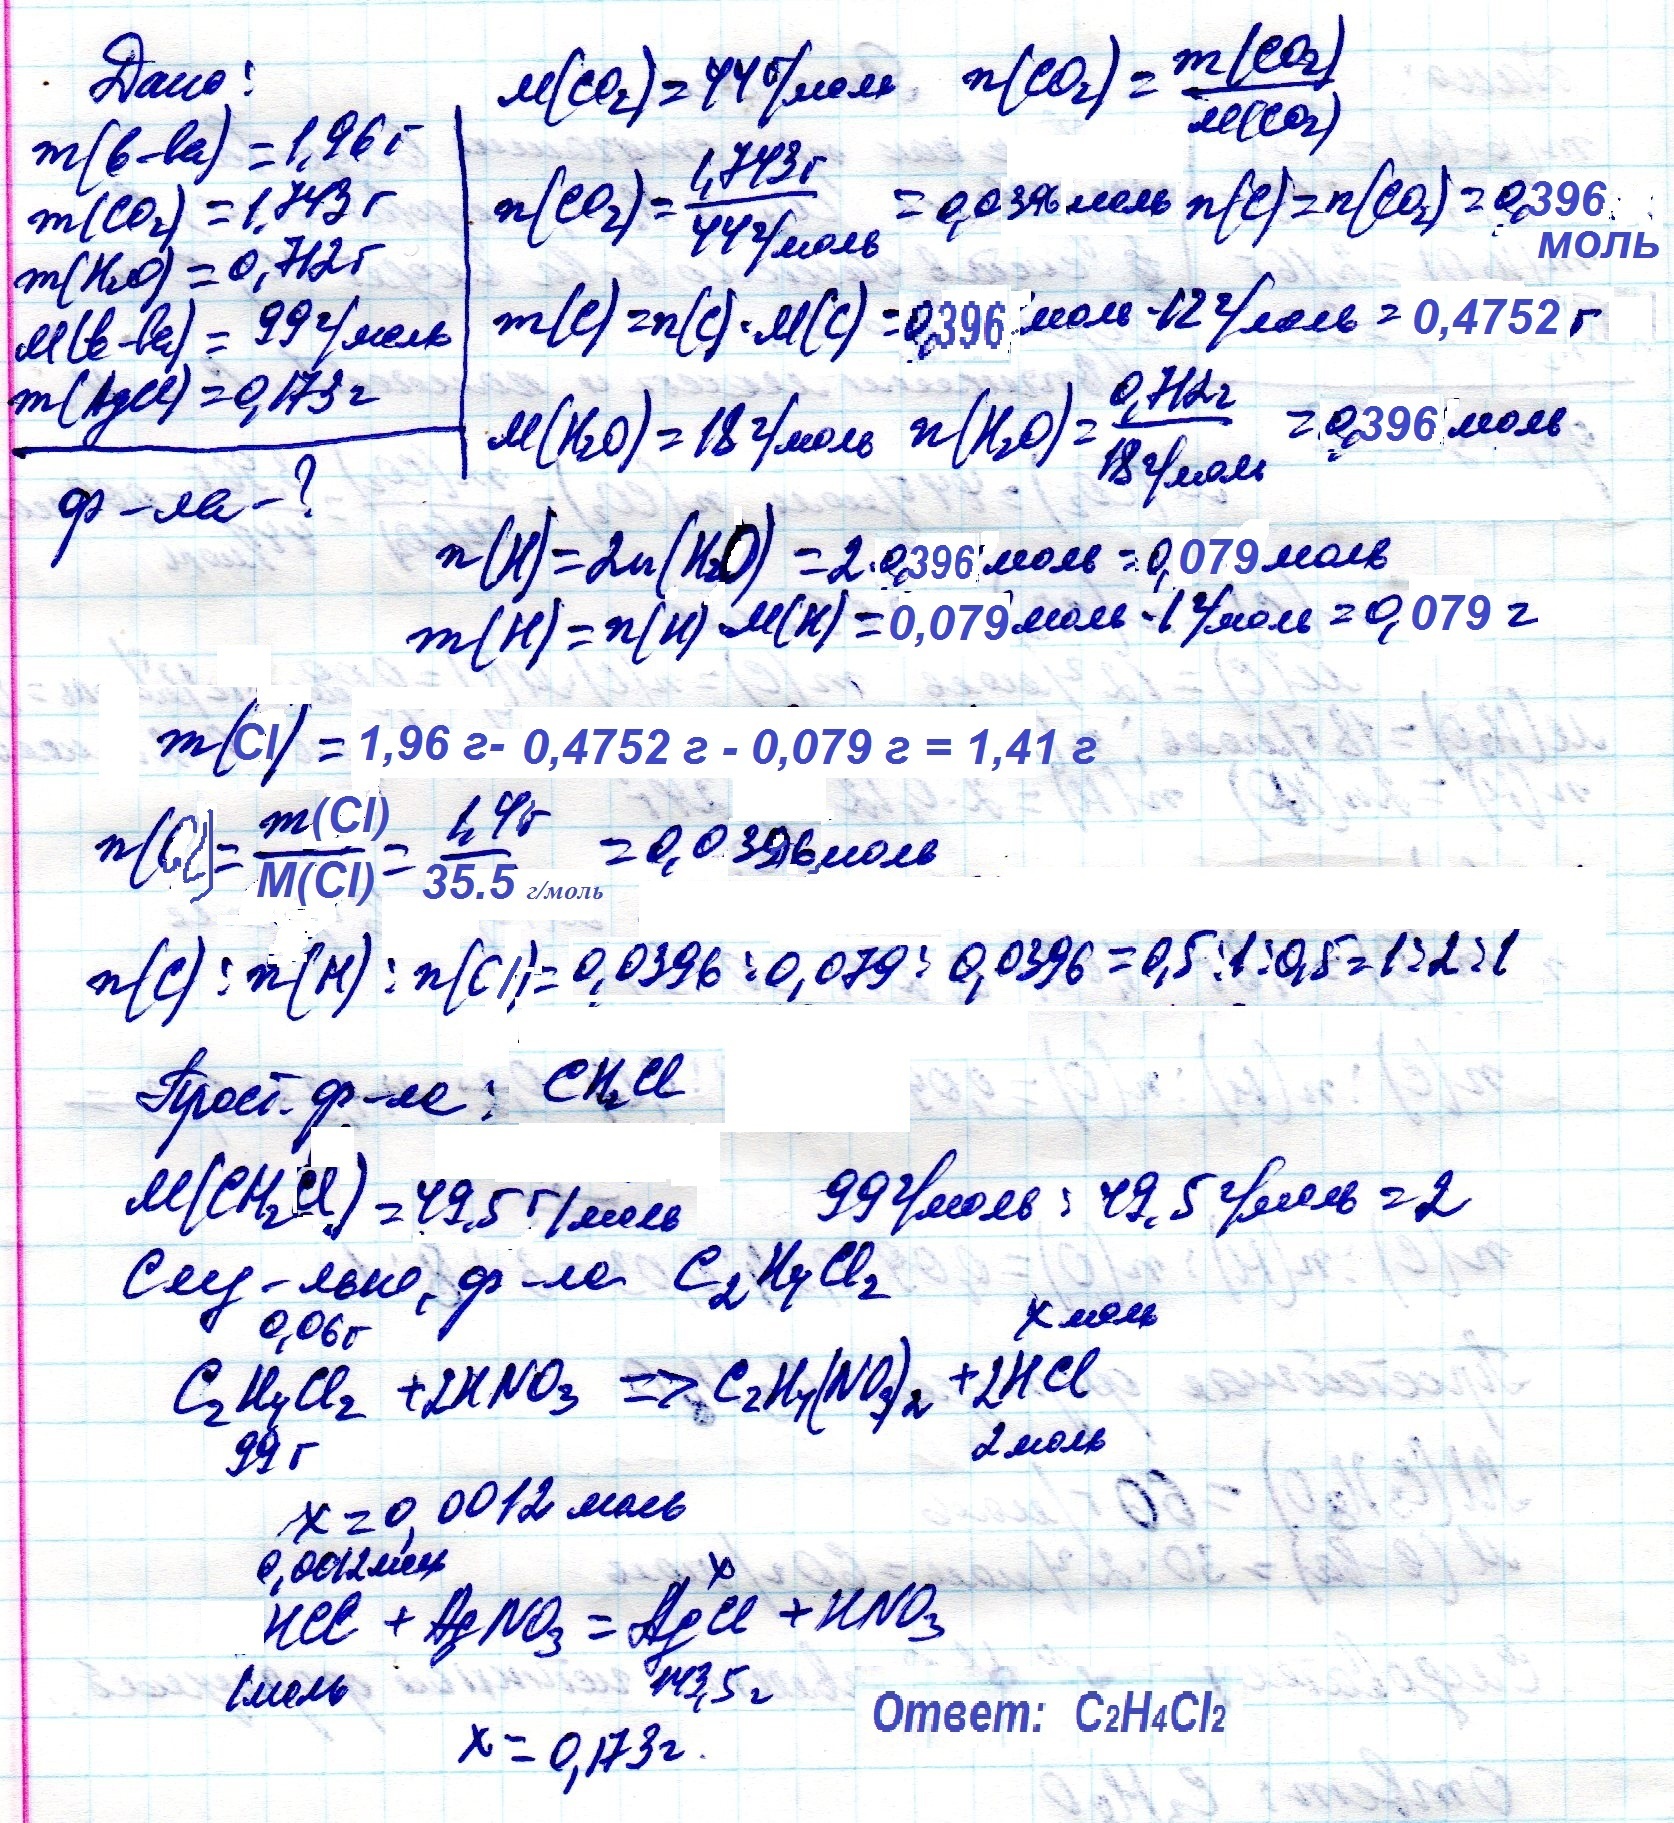 Дано:
m(в-ва) = 1,96 г
m(CO2) = 1,743 г
m(H2O) = 0,712 г
M(в-ва) = 99 г/моль
m(AgCl) = 0,173 г
ф-ла - ?
M(CO2) = 44 г/моль n(CO2) = m(CO2) / M(CO2)
n(CO2) = 1,743 г / 44 г/моль = 0,0396 моль n(C) = n(CO2) = 0,396 моль
m(C) = n(C) · M(C) = 0,396 моль · 12 г/моль = 0,4752 г
M(H2O) = 18 г/моль n(H2O) = 0,712 г / 18 г/моль = 0,396 моль
n(H) = 2n(H2O) = 2 · 0,396 моль = 0,079 моль
m(H) = n(H) · M(H) = 0,079 моль · 1 г/моль = 0,079 г
m(Cl) = 1,96 г - 0,4752 г - 0,079 г = 1,41 г
n(Cl) = m(Cl) / M(Cl) = 1,4 г / 35.5 г/моль = 0,0396 моль
n(C) : n(H) : n(Cl) = 0,0396 : 0,079 : 0,0396 = 0,5 : 1 : 0,5 = 1 : 2 : 1
Прост. ф-ла: CH2Cl
M(CH2Cl) = 49,5 г/моль 99 г/моль : 49,5 г/моль = 2
След-льно, ф-ла C2H4Cl2
0,06 г x моль
C2H4Cl2 + 2HNO3 => C2H4(NO3)2 + 2HCl
99 г 2 моль
x = 0,0012 моль
0,0012 моль x
HCl + AgNO3 = AgCl + HNO3
1 моль 143,5 г
x = 0,173 г.
Ответ: C2H4Cl2